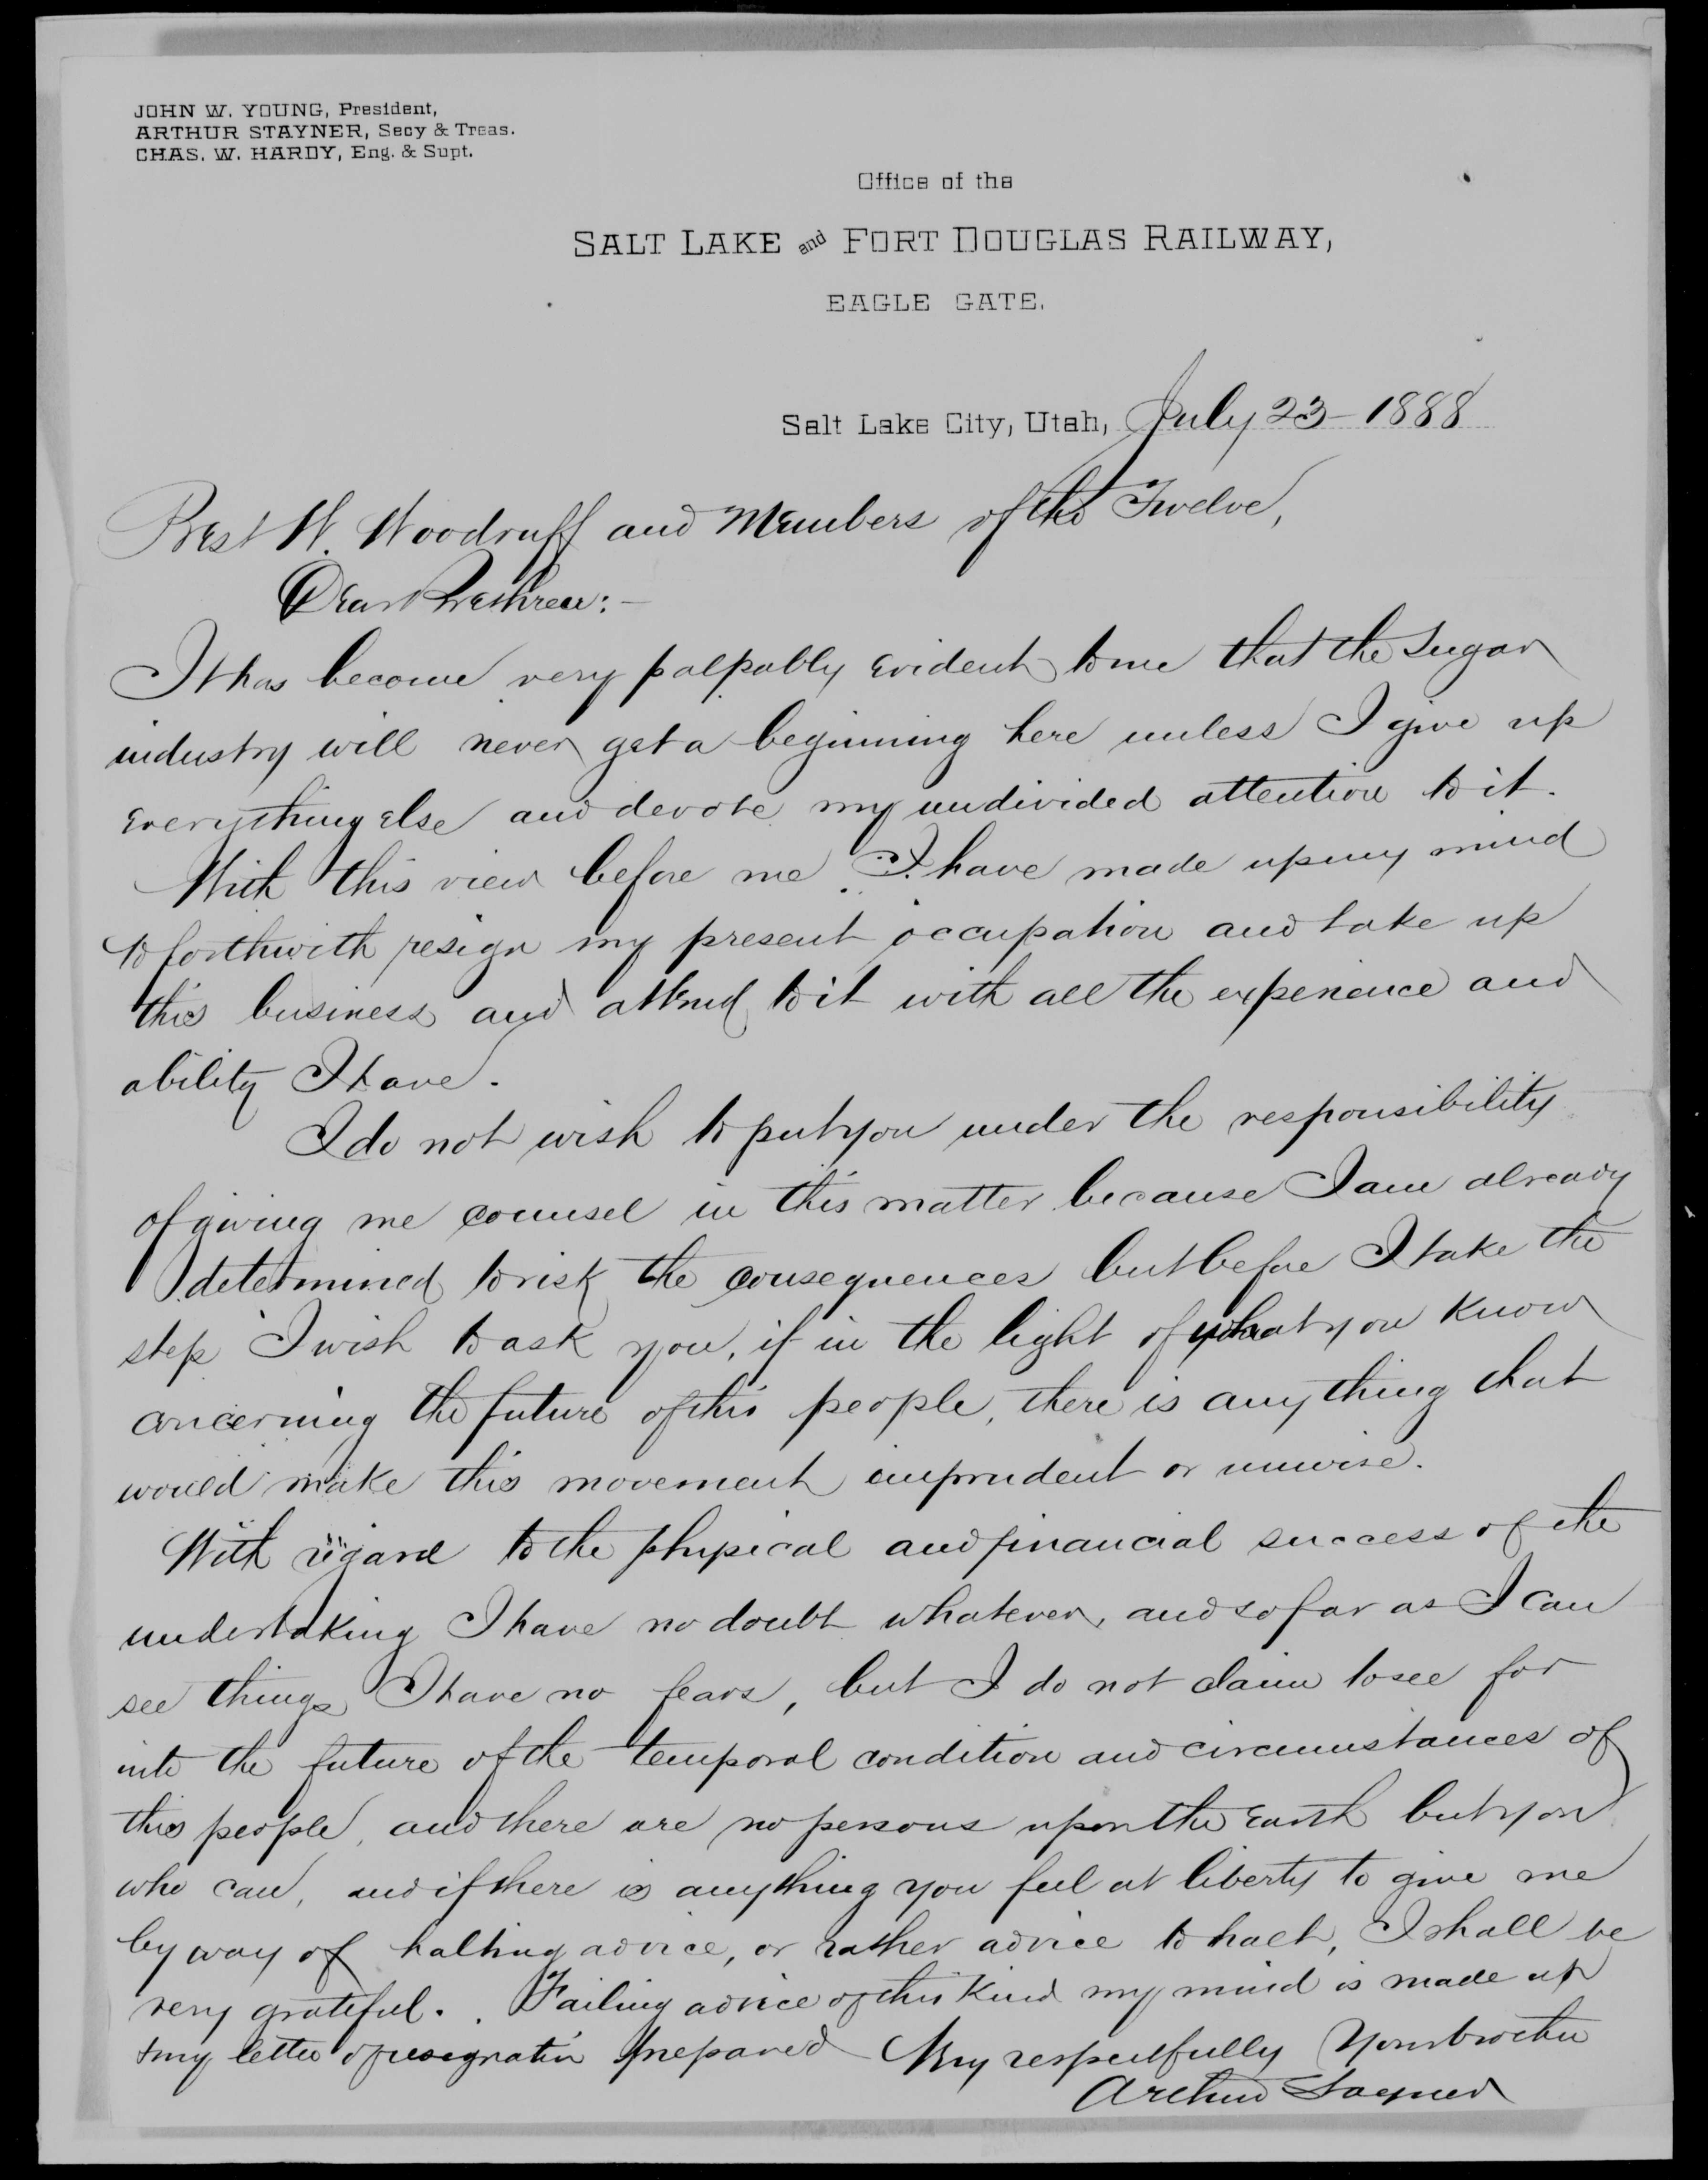 JOHN W. YOUNG, President,
ARTHUR STAYNER, Secy & Treas.
CHAS. W. HARDY, Eng. & Supt.
Office of the
SALT LAKE and FORT DOUGLAS RAILWAY,
EAGLE GATE.
Salt Lake City, Utah, July 23 - 1888
Prest W. Woodruff and Members of the Twelve,
Dear Brethren: -
It has become very palpably evident to me that the Sugar
industry will never get a beginning here unless I give up
everything else and devote my undivided attention to it.
With this view before me I have made up my mind
to forthwith resign my present occupation and take up
this business and attend to it with all the experience and
ability I have.
I do not wish to put you under the responsibility
of giving me counsel in this matter because I am already
determined to risk the consequences but before I take the
step I wish to ask you, if in the light of what you know
concerning the future of this people, there is any thing that
would make this movement imprudent or unwise.
With regard to the physical and financial success of the
undertaking I have no doubt whatever, and so far as I can
see things I have no fears, but I do not claim to see far
into the future of the temporal condition and circumstances of
this people, and there are no persons upon the Earth but you
who can, and if there is anything you feel at liberty to give me
by way of halting advice, or rather advice to halt, I shall be
very grateful. Failing advice of this kind my mind is made up
& my letter of resignation prepared Very respectfully Your brother
Arthur Stayner